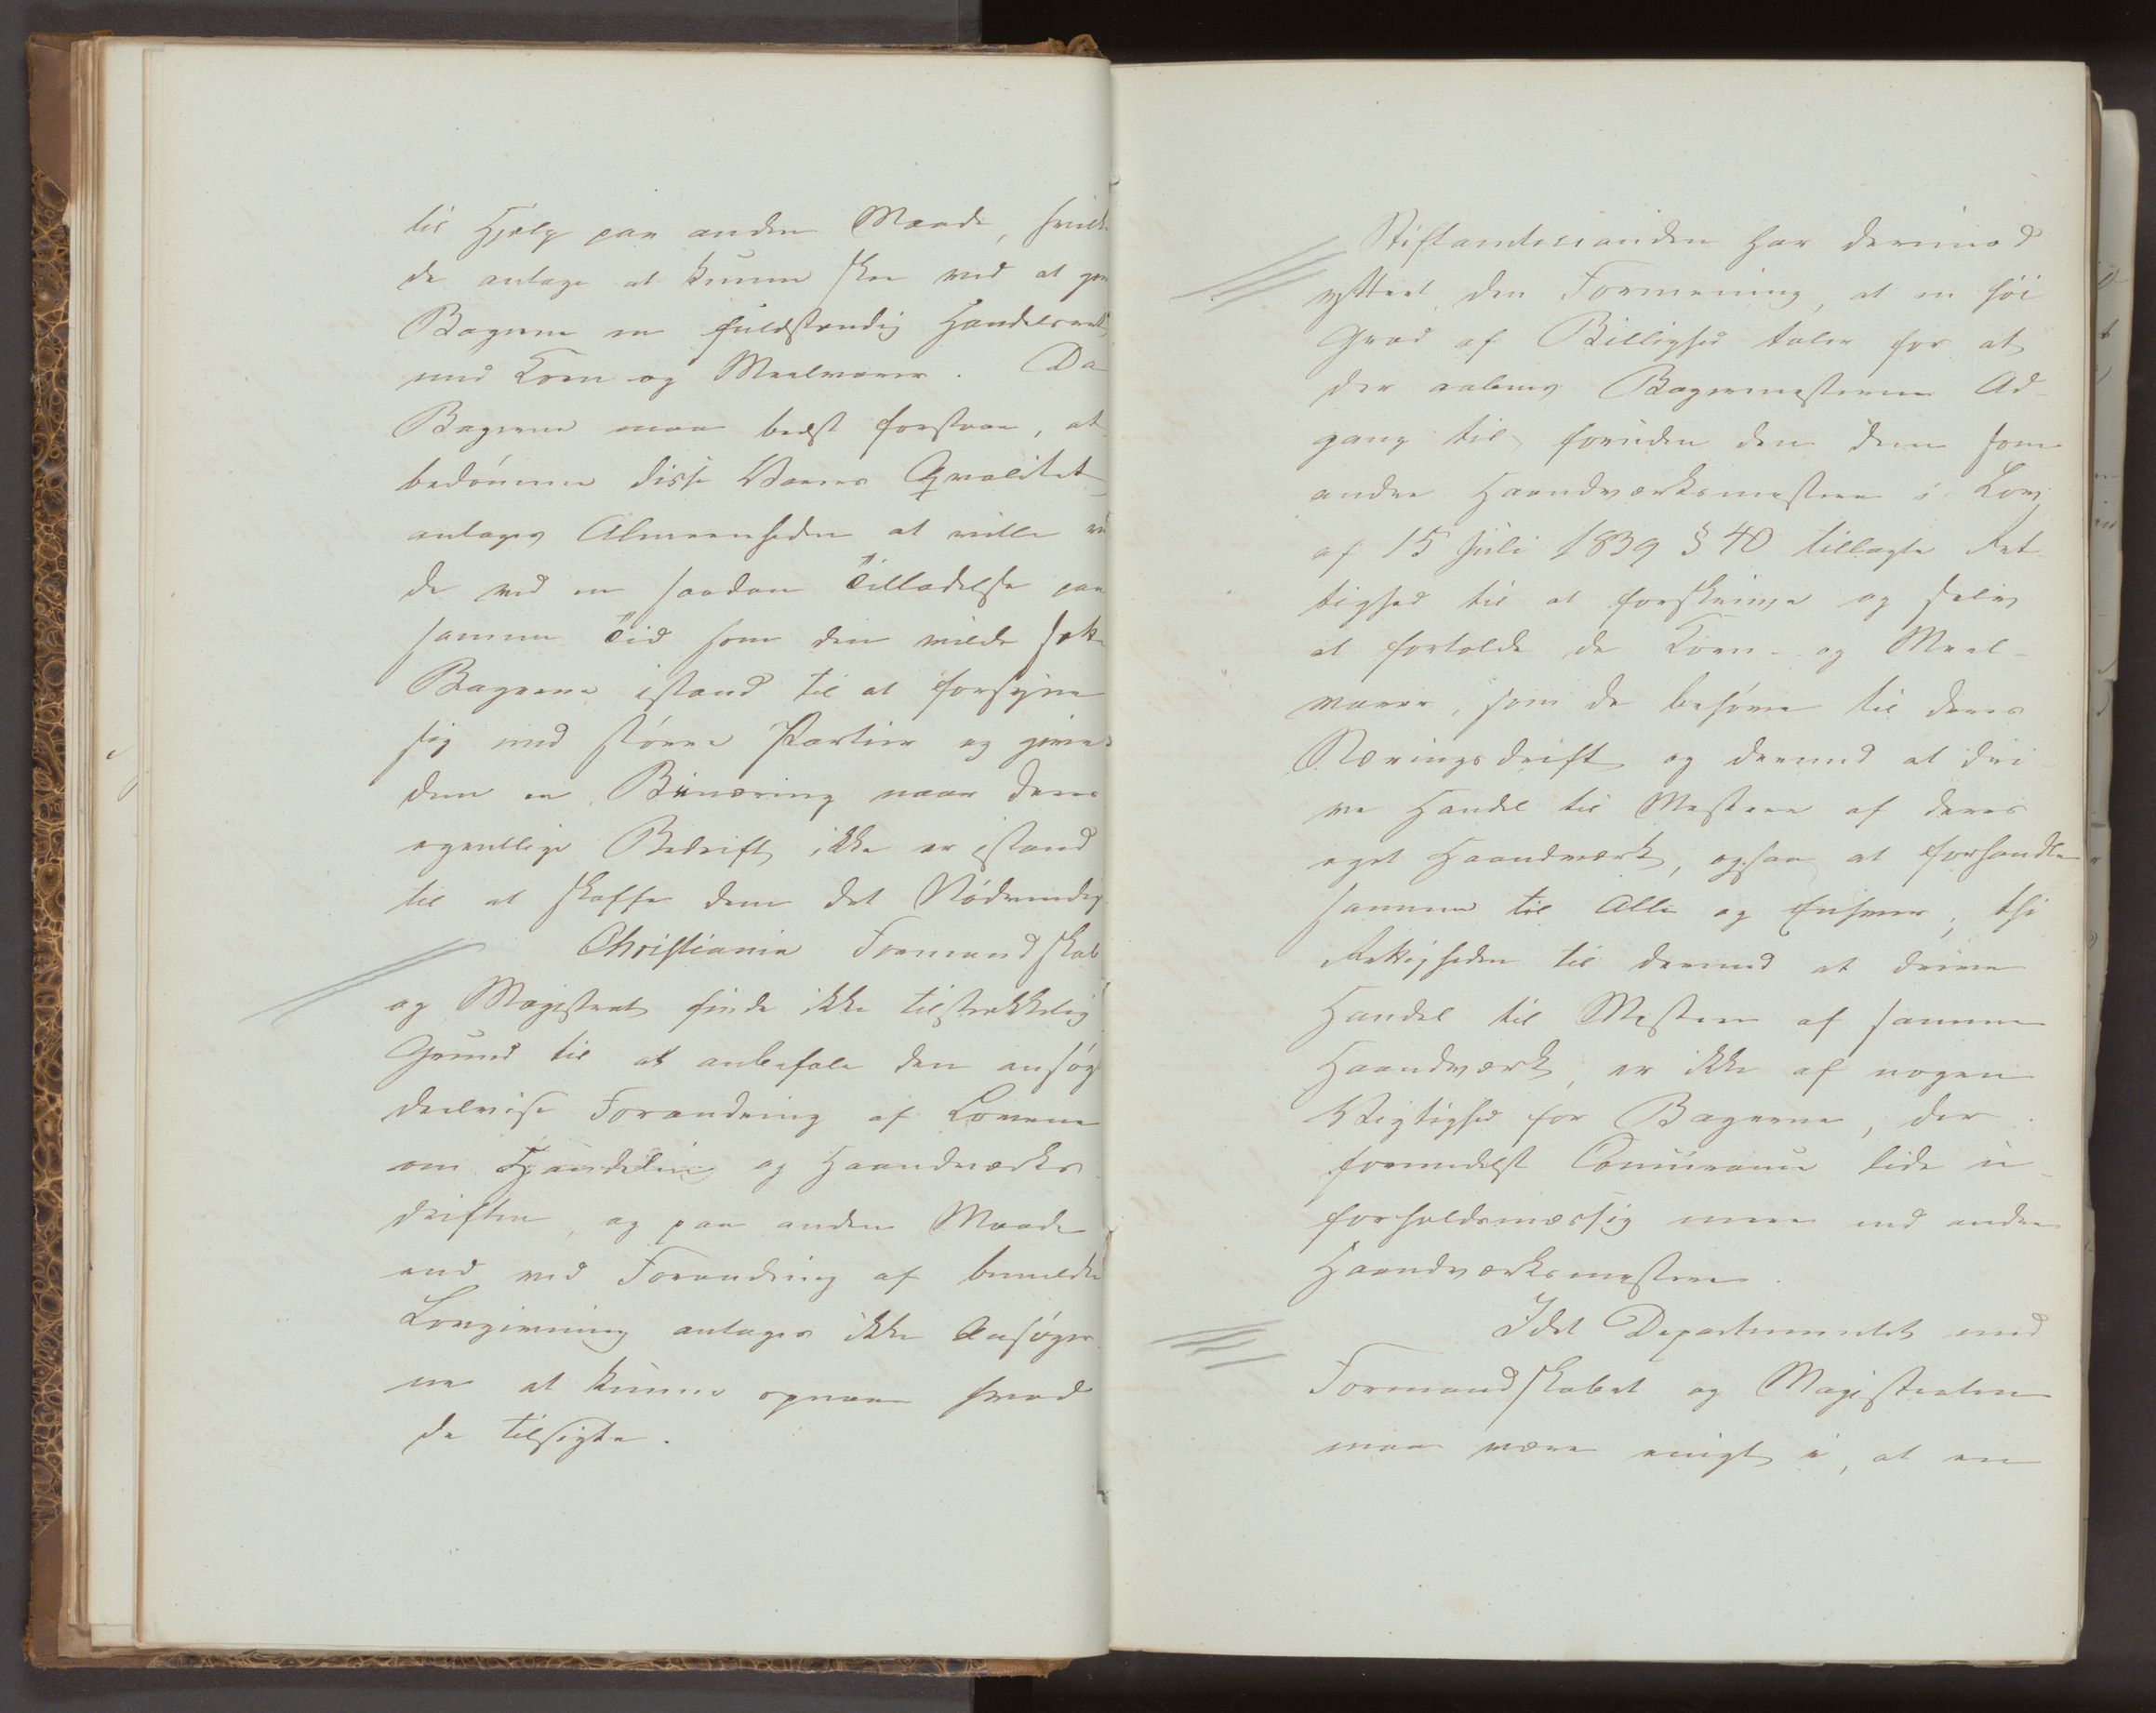 til Hjælp paa anden Maade, hvilke
de antage at kunne skee ved at give
Bagerne en fuldstændig Handelsret
med Korn og Meelvarer. Da
Bagerne maa bedst forstaae, at
bedömme disse Varers Qvalitet
antages Almeenheden at ville
de ved en saadan Tilladelse paa
samme Tid som den vilde sætte
Bagerne istand til at forsyne
sig med större Partier og give
dem en Binæring naar deres
egentlige Bedrift ikke er istand
til at skaffe dem det Nödvendige
Christiania Formandskab
og Magistrat finde ikke tilstrækkelig
Grund til at anbefale den ansögte
deelvise Forandring af Lovene
om Handelen og Haandværks
driften, og paa anden Maade
end ved Forandring af bemeldte
Lovgivning antages ikke Ansöger
ne at kunne opnaae hvad
de tilsigte.
Stiftamtmanden har derimod
yttret den Formening, at en höi
Grad af Billighed taler for at
der aabnes Bagermesterne Ad-
gang til foruden den dem som
andre Haandværksmestere i Lov
af 15 Juli 1839 § 40 tillagte Ret
tighed til at forskrive og selv
at fortolde de Korn- og Meel-
varer, som de behöve til deres
Næringsdrift og dermed at dri-
ve Handel til Mestere af deres
eget Haandværk, ogsaa at forhandle
samme til Alle og Enhver; thi
Rettigheden til dermed at drive
Handel til Mestere af samme
Haandværk, er ikke af nogen
Vigtighed for Bagerne, der
formedelst Concurrence lide u-
forholdsmæssig mere end andre
Haandværksmestere.
Idet Departementet med
Formandskabet og Magistraten
maa være enigt i, at en